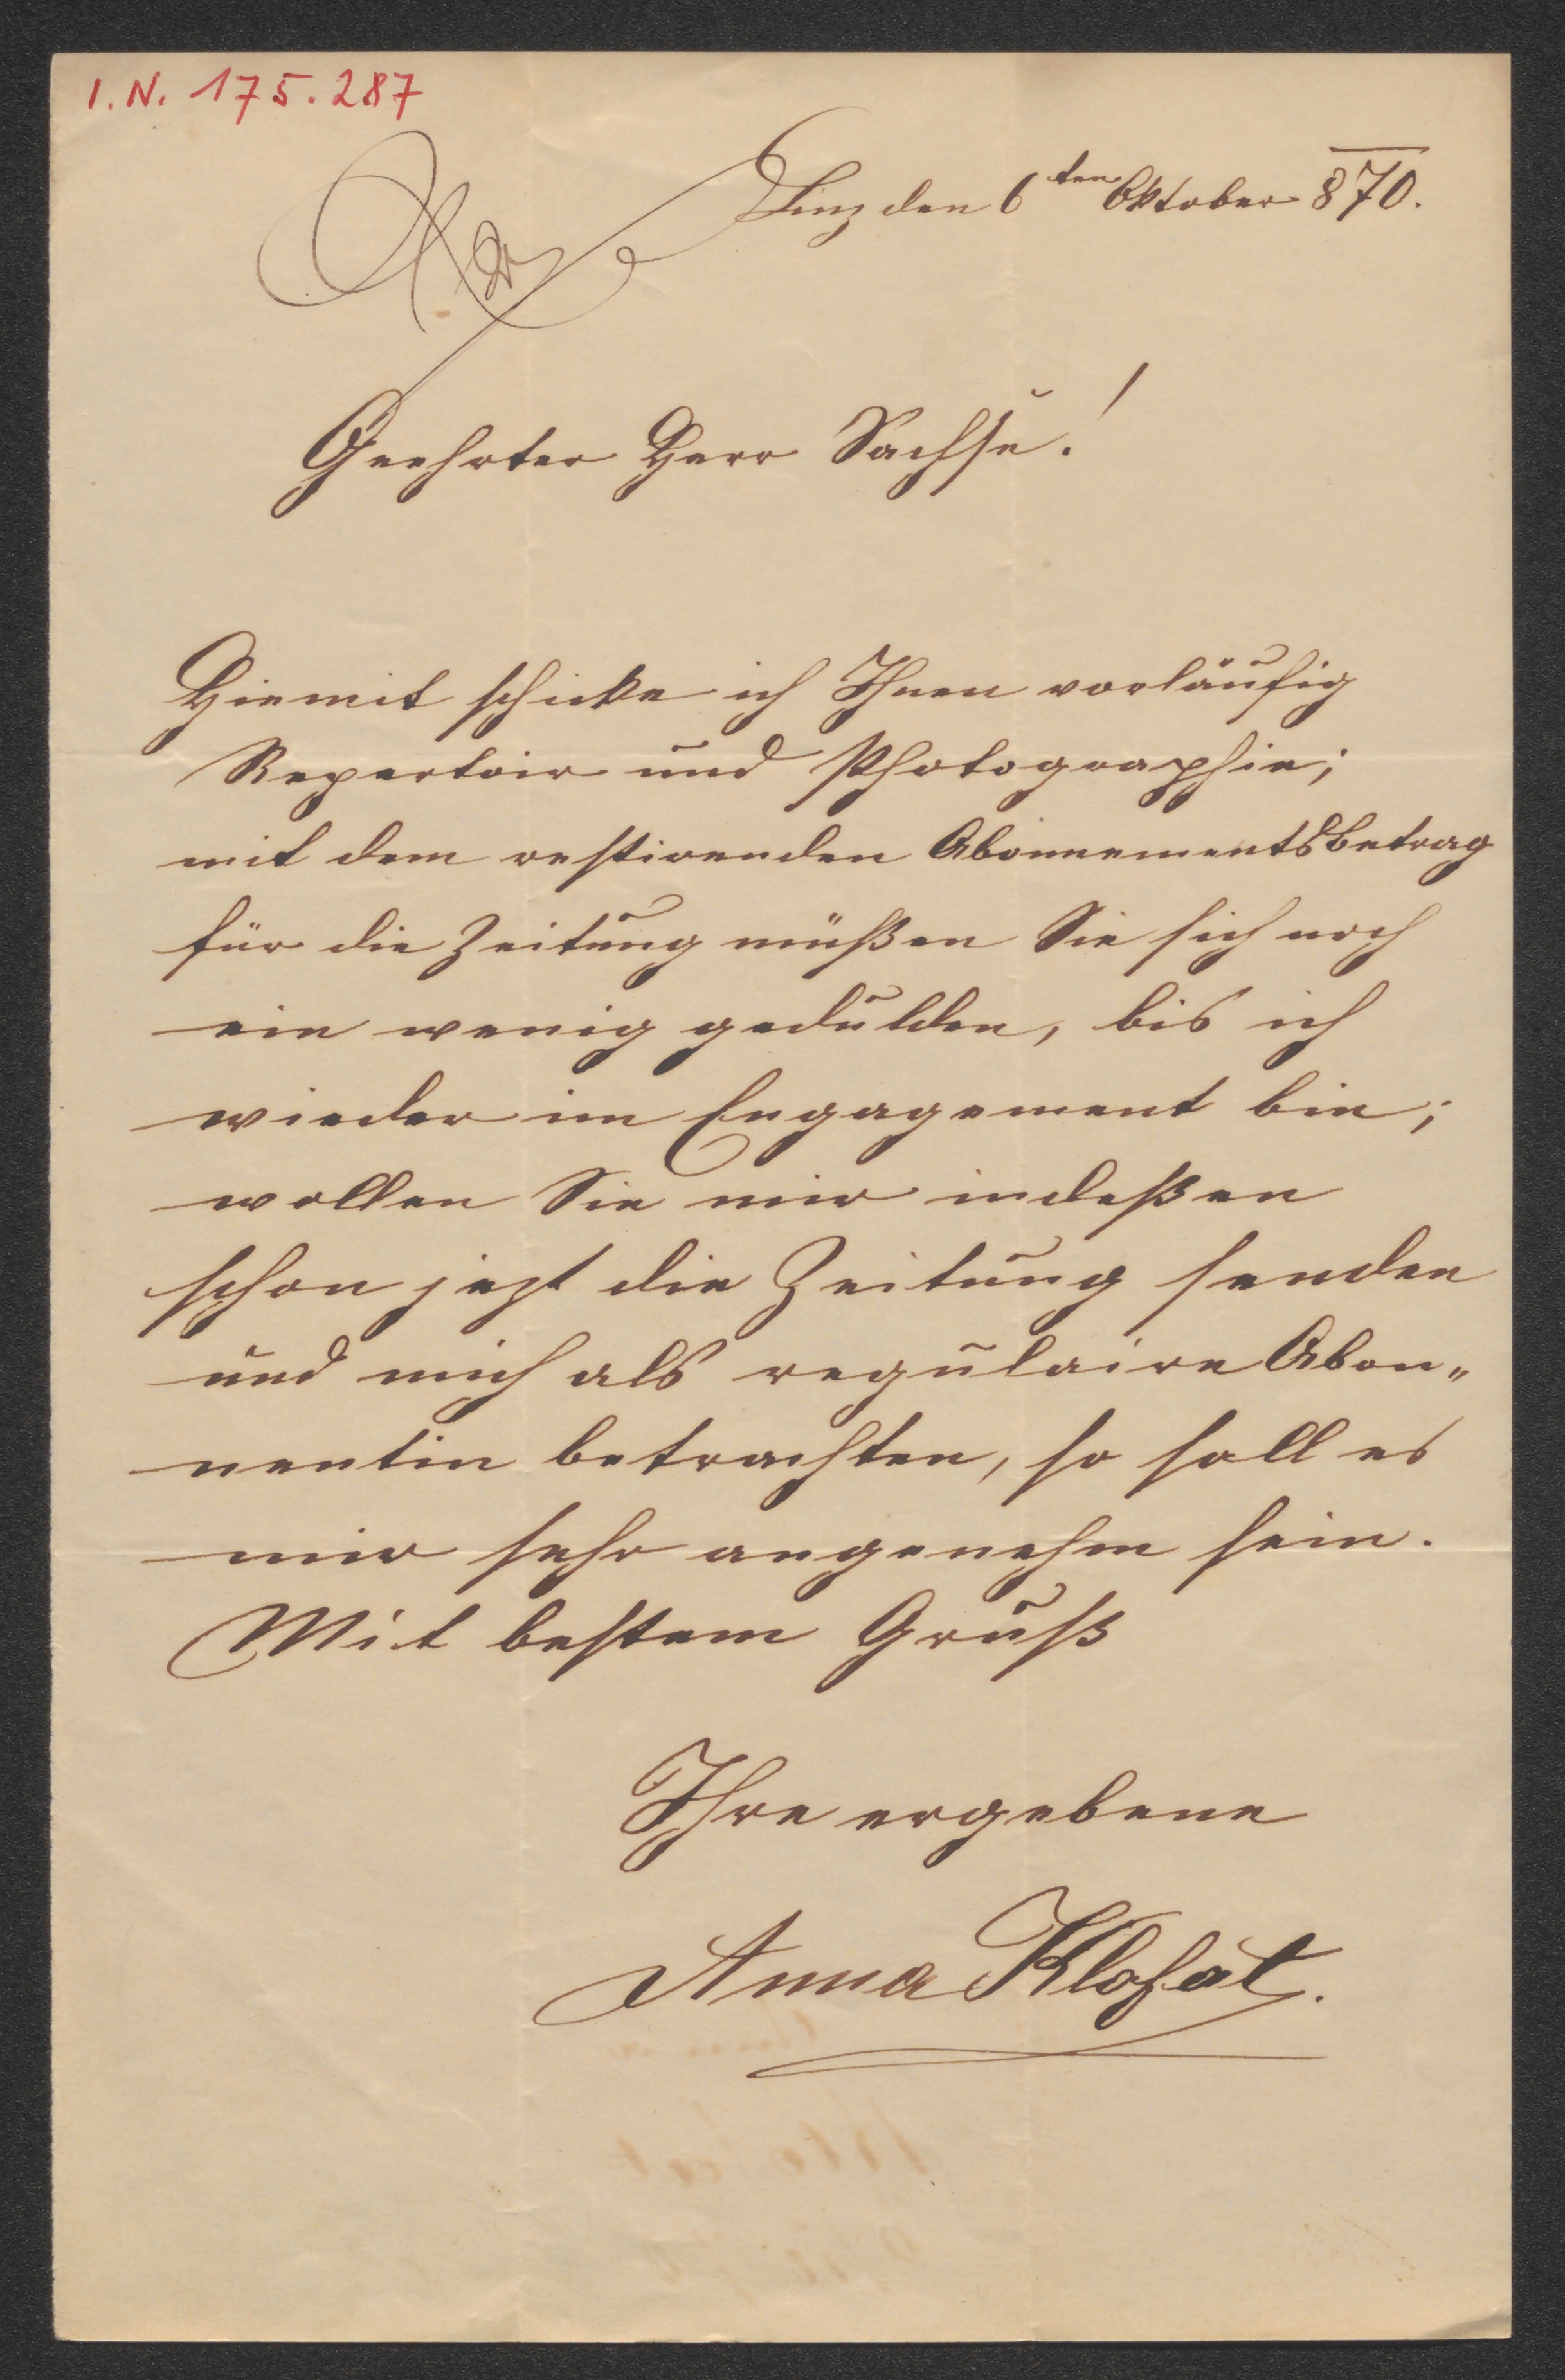 I. N. 175.287
Linz den 6ten Oktober 870.
Geehrter Herr Sachse!
Hiemit schicke ich Ihnen vorläufig
Repertoir und Photographie;
mit dem restirenden Abonnementsbetrag
für die Zeitung müßen Sie sich noch
ein wenig gedulden, bis ich
wieder im Engagement bin;
wollen Sie mir indeßen
schon jezt die Zeitung senden
und mich als regulaire Abon„
nentin betrachten, so soll es
mir sehr angenehm sein.
Mit bestem Gruß
Ihre ergebene
Anna Klofát.